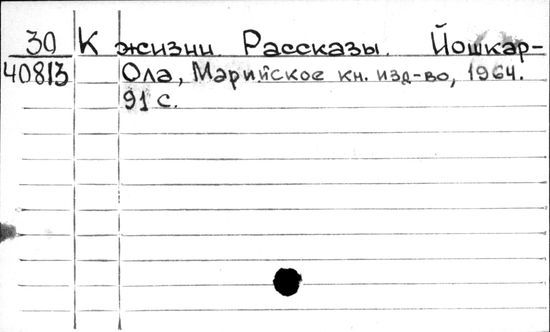 30 К жизни. Рассказы. Йошкар-
40813 Ола, Марийское кн. изд-во, 1964.
91 с.